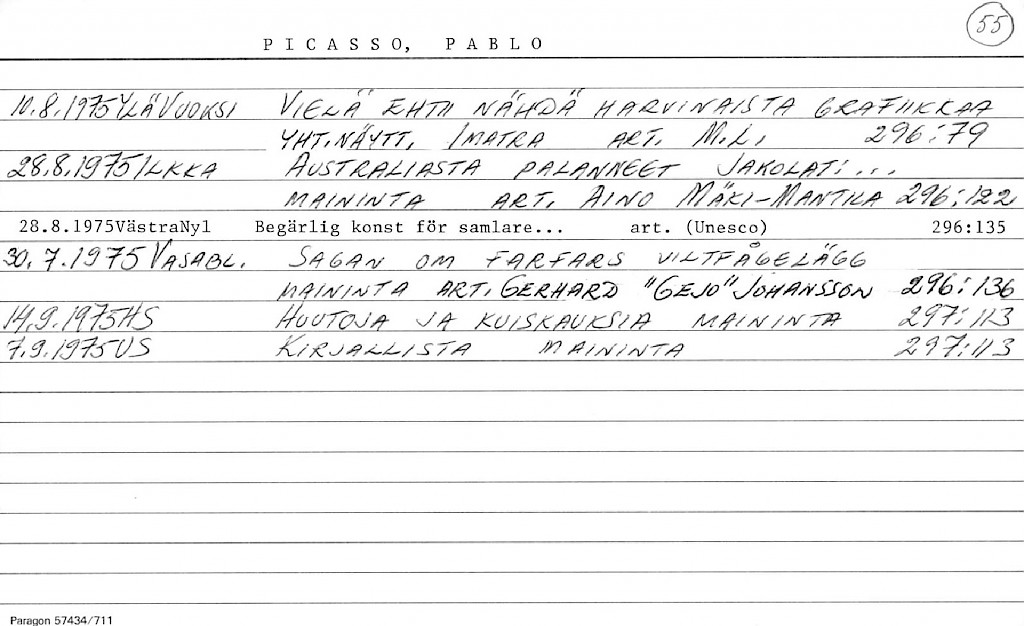 55
PICASSO, PABLO
10.8.1975 YLÄVUOKSI VIELÄ EHTII NÄHDÄ HARVINAISTA GRAFIIKKAA
YHT.NÄYTT. IMATRA ART. M.L. 296:79
28.8.1975 ILKKA AUSTRALIASTA PALANNEET JAKOLATI...
MAININTA ART. AINO MÄKI-MANTILA 296:122
28.8.1975VästraNyl Begärlig konst för samlare... art. (Unesco) 296:135
30.7.1975 VASABL. SAGAN OM FARFARS VILTFÅGELÄGG
MAININTA ART. GERHARD "GEJO" JOHANSSON 296:136
14.9.1975 HS HUUTOJA JA KUISKAUKSIA MAININTA 297:113
7.9.1975 US KIRJALLISTA MAININTA 297:113
Paragon 57434/711